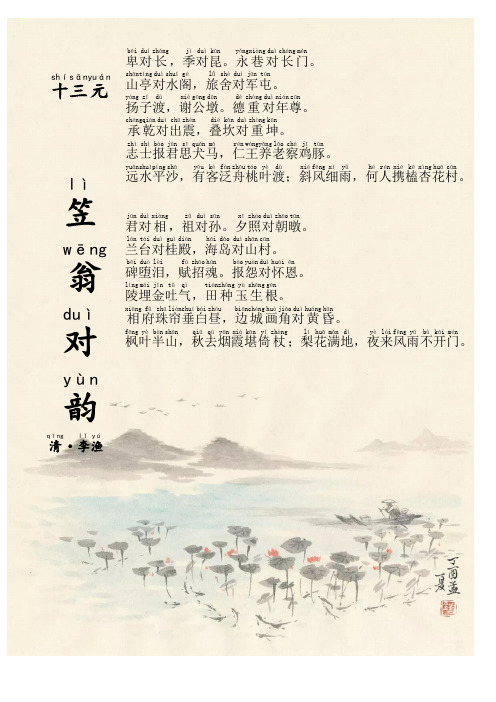 shí sān yuán
十三元
lì
笠
wēng
翁
duì
对
yùn
韵
qīng lǐ yú
清·李渔
bēi duì zhǎng jì duì kūn yǒngxiàng duì cháng mén
卑对长，季对昆。永巷对长门。
shāntíng duì shuǐ gé lǚ shè duì jūn tún
山亭对水阁，旅舍对军屯。
yáng zǐ dù xiè gōng dūn dé zhòng duì nián zūn
扬子渡，谢公墩。德重对年尊。
chéngqián duì chū zhèn dié kǎn duì chóng kūn
承乾对出震，叠坎对重坤。
zhì shì bào jūn sī quǎn mǎ rén wángyǎng lǎo chá jī tún
志士报君思犬马，仁王养老察鸡豚。
yuǎnshuǐpíng shā yǒu kè fàn zhōu táo yè dù xié fēng xì yǔ hé rén xié kē xìng huā cūn
远水平沙，有客泛舟桃叶渡；斜风细雨，何人携榼杏花村。
jūn duì xiàng zǔ duì sūn xī zhào duì zhāo tūn
君对相，祖对孙。夕照对朝暾。
lán tái duì guì diàn hǎi dǎo duì shān cūn
兰台对桂殿，海岛对山村。
bēi duò lèi fù zhāo hún bào yuàn duì huái ēn
碑堕泪，赋招魂。报怨对怀恩。
líng mái jīn tǔ qì tiánzhòng yù shēng gēn
陵埋金吐气，田种玉生根。
xiàng fǔ zhū liánchuí bái zhòu biānchéng huà jiǎo duì huáng hūn
相府珠帘垂白昼，边城画角对黄昏。
fēng yè bàn shān qiū qù yān xiá kān yǐ zhàng lí huā mǎn dì yè lái fēng yǔ bù kāi mén
枫叶半山，秋去烟霞堪倚杖；梨花满地，夜来风雨不开门。
丁酉孟
夏